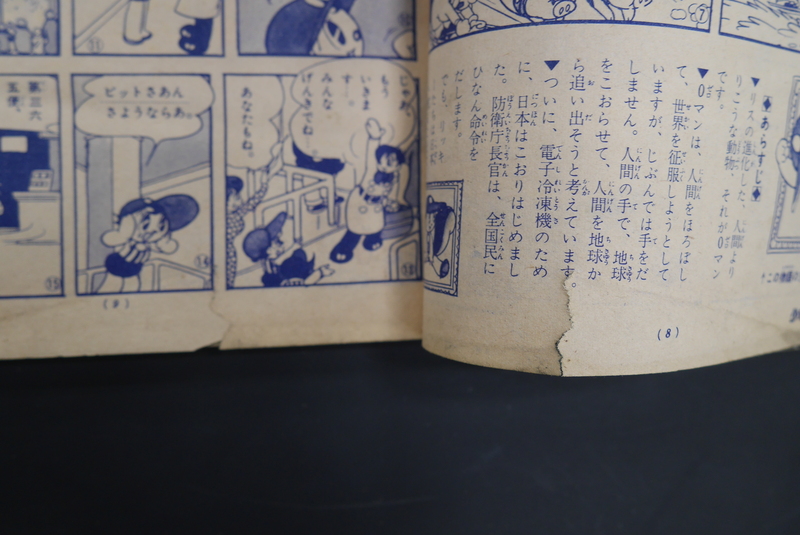 ◆あらすじ◆
▼リスの進化した、人間より
りこうな動物、それが0マン
です。
▼0マンは、人間をほろぼし
て、世界を征服しようとして
いますが、じぶんでは手をだ
しません。人間の手で、地球
をこおらせて、人間を地球か
ら追い出そうと考えています。
▼ついに、電子冷凍機のため
に、日本はこおりはじめまし
た。防衛庁長官は、全国民に
ひなん命令を
だします。
でも、リッキ
(8)
じゃあ
もう
いきま
すー。
みんな
げんきでね。
あなたもね。
13
ピットさあん
さようならあ。
14
第三六
五便、
15
11
12
(9)